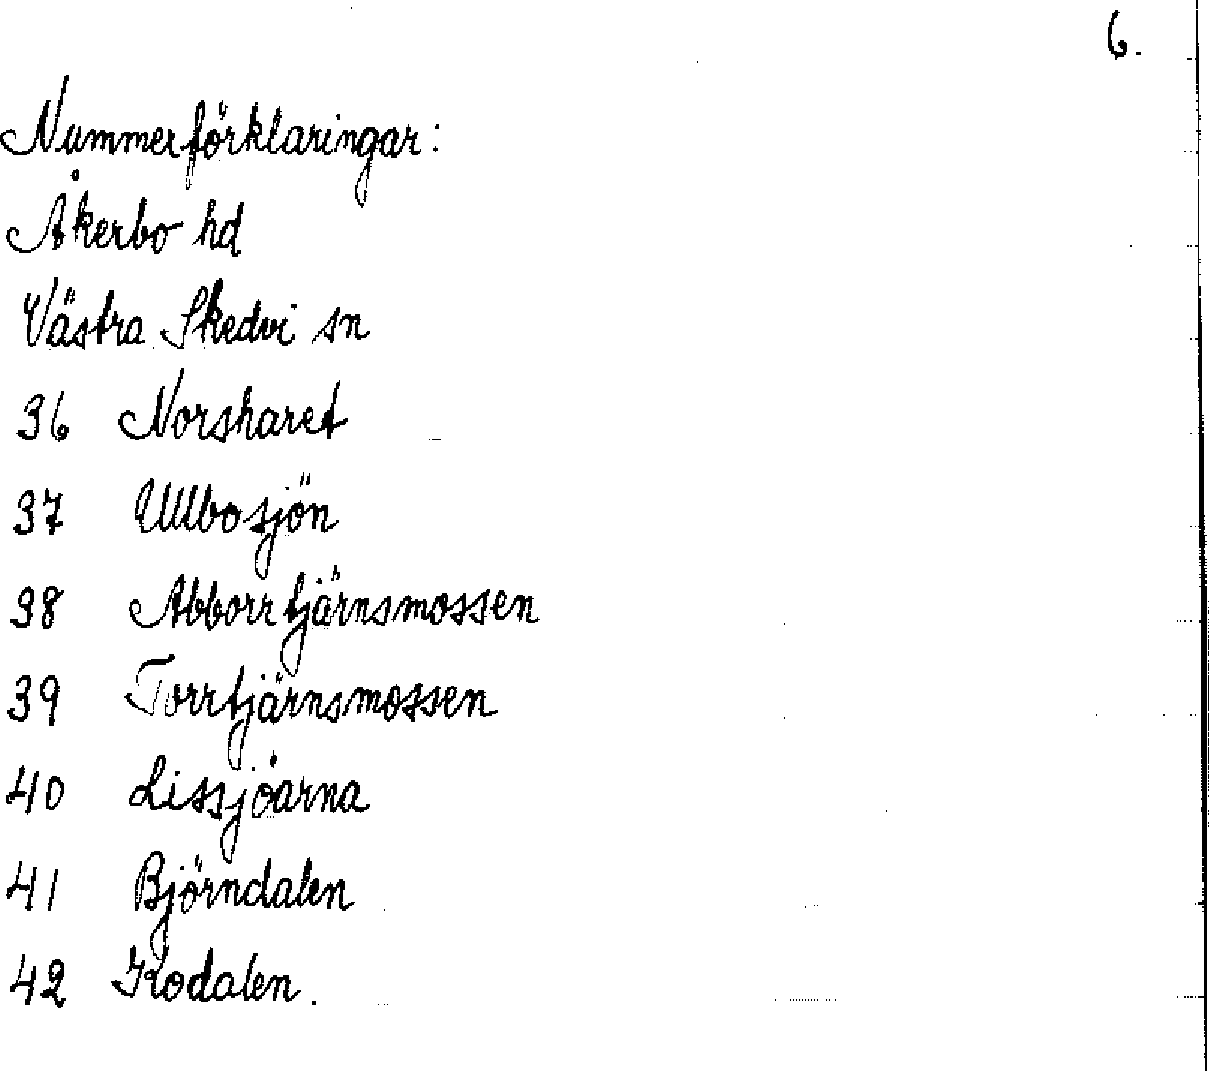 6.
Nummerförklaringar:
Åkerbo hd
Västra Skedvi sn
36 Norsharet
37 Ullbosjön
38 Abborrtjärnsmossen
39 Torrtjärnsmossen
40 Lissjöarna
41 Björndalen
42 Kodalen.